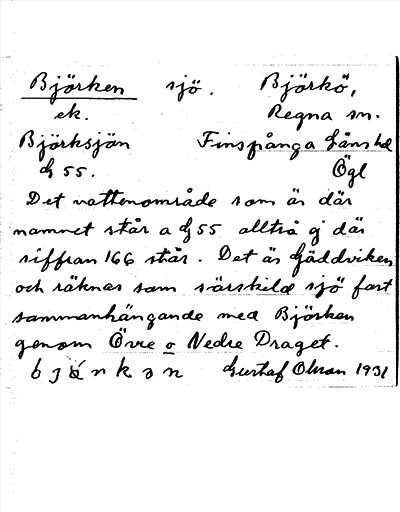 Björken sjö. Björkö,
ek. Regna sn.
Björksjön Finspånga länshd
G 55. Ögl
Det vattenområde som är där
namnet står a G 55 alltså ej där
siffran 166 står. Det är Gäddviken
och räknas som särskild sjö fast
sammanhängande med Björken
genom Övre o Nedre Draget.
Gustaf Olson 1931